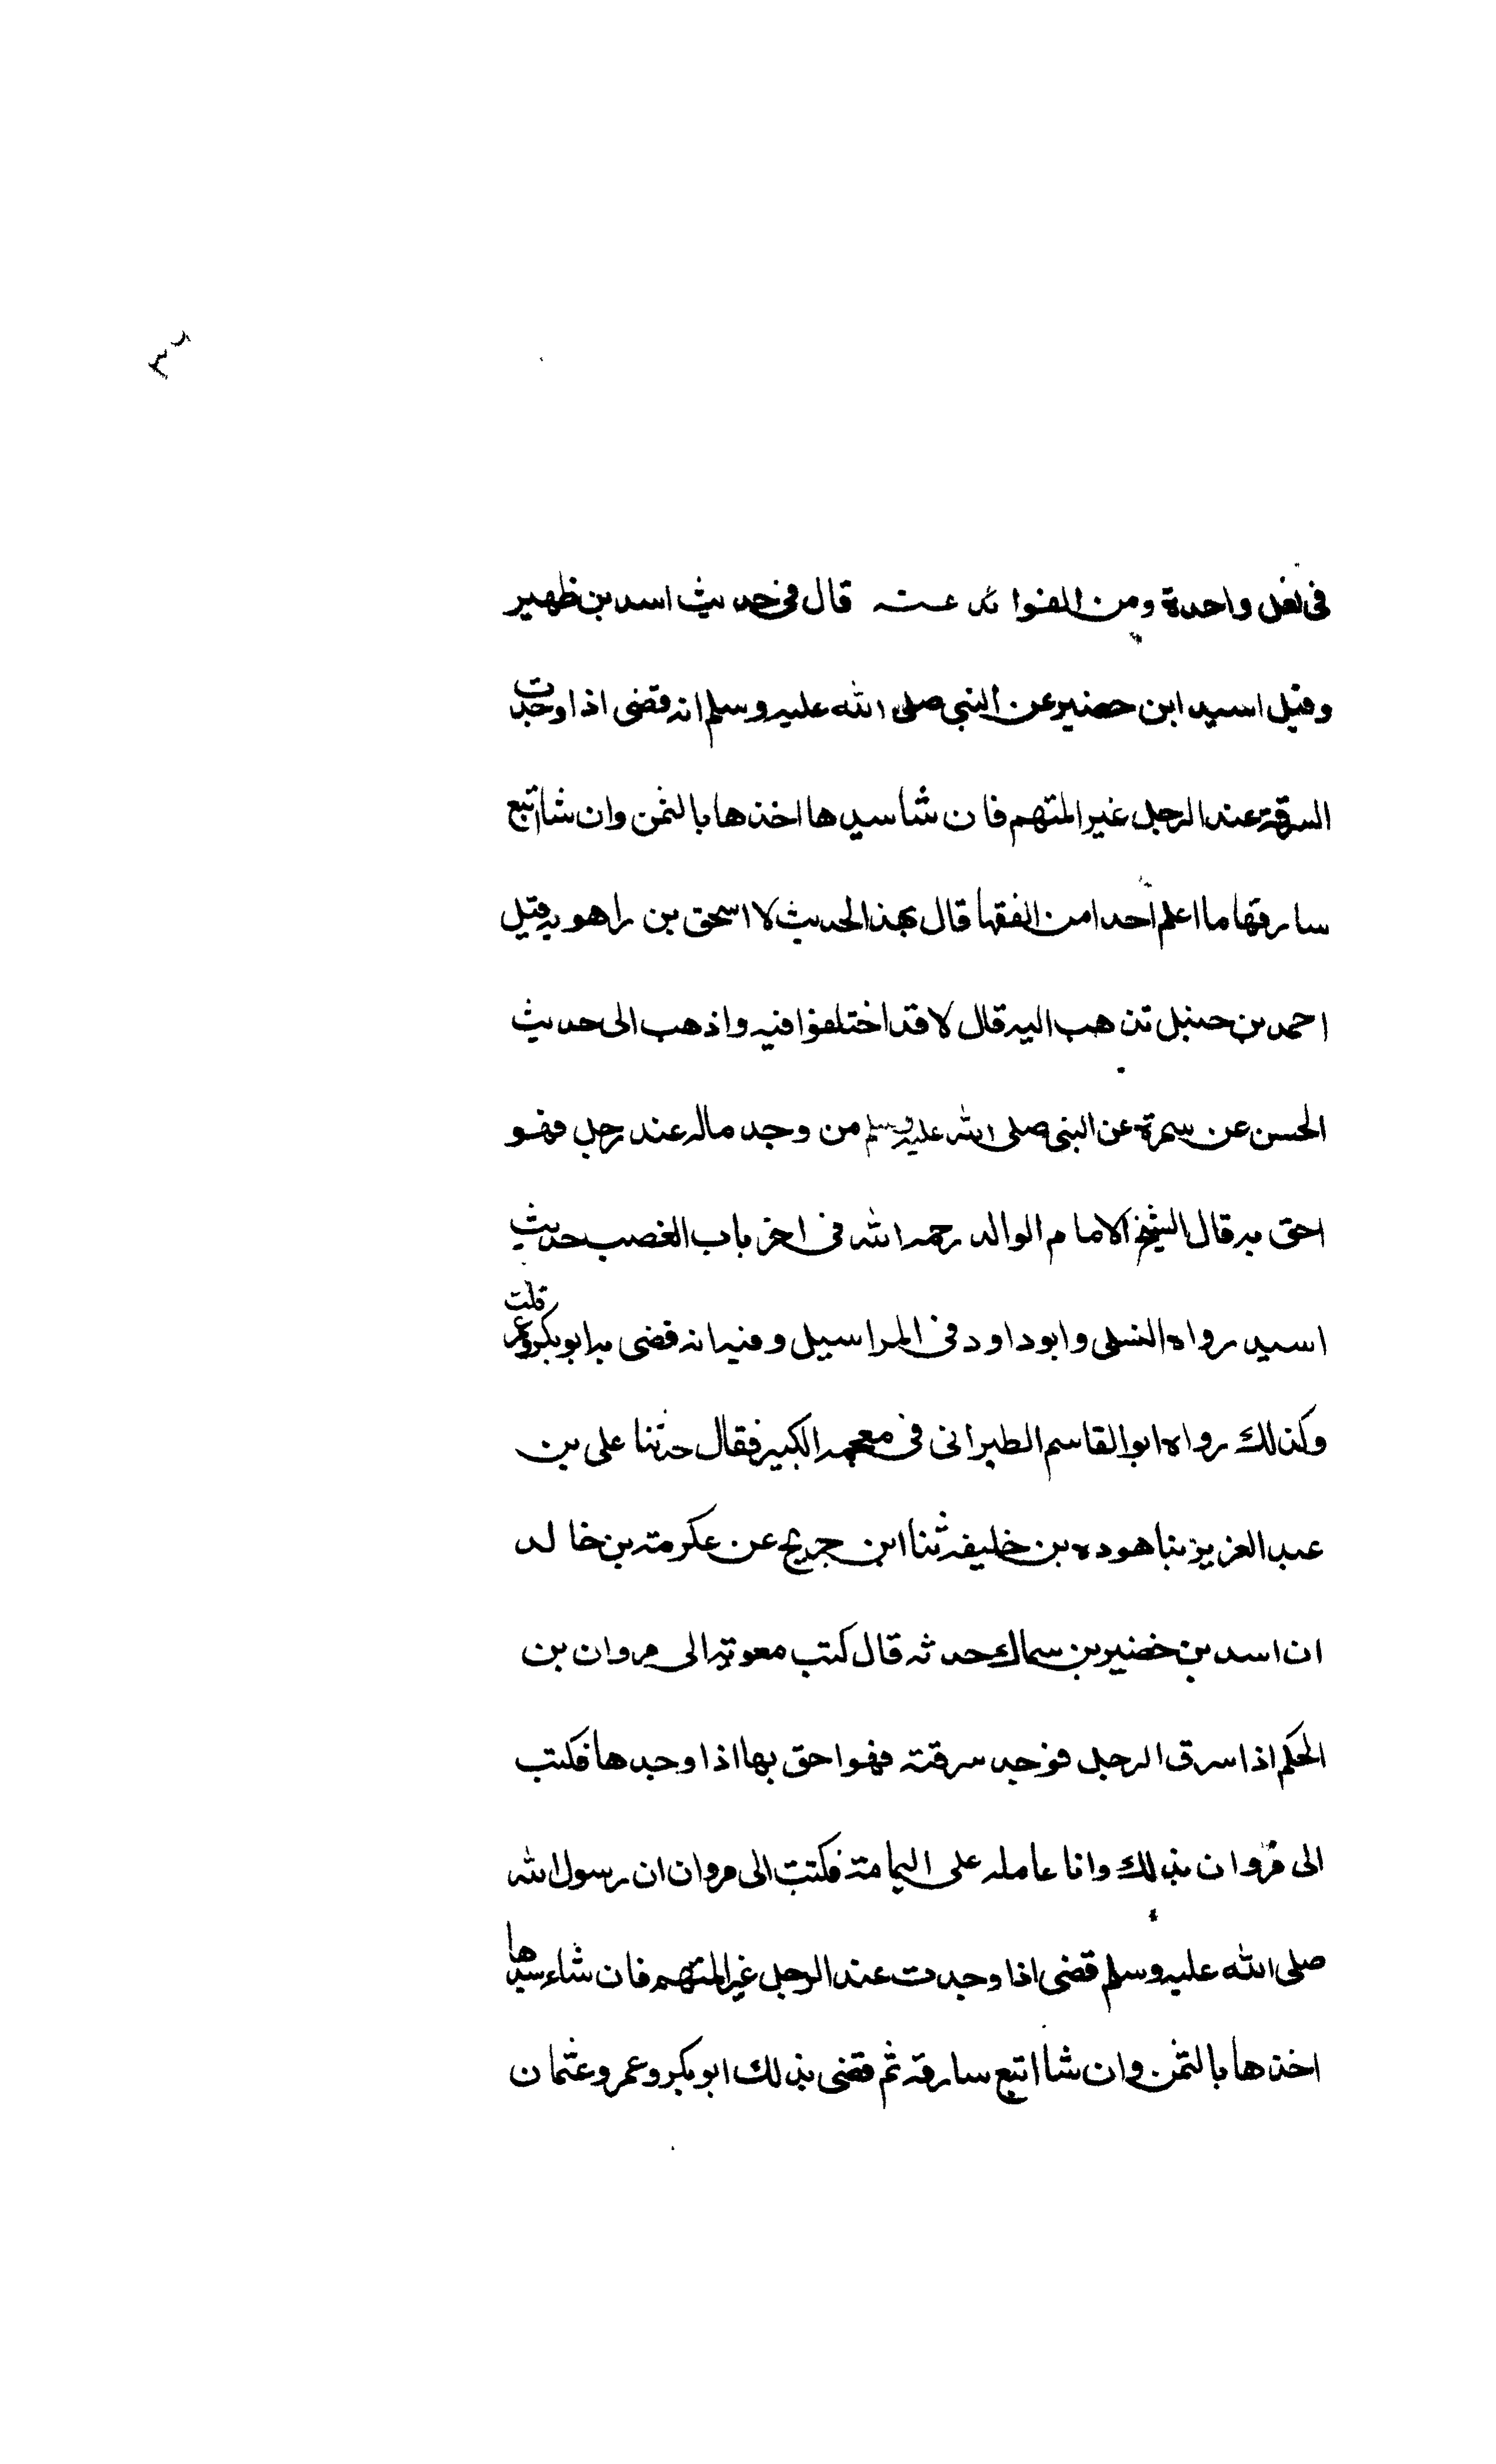 فى نعل واحدة ومن الفوائد عنه قال فى حديث اسد بن ظهير
وقيل اسيد ابن حضير عن النبي صلى الله عليه وسلم انه قضى اذا وجدت
السرقة عند الرجل غير المتهم فان شا سيدها اخذها بالثمن وان شا اتبع
سارقها ما اعلم احدا من الفقها قال بهذا الحديث لا اسحق بن راهويه قيل
احمد بن حنبل تذهب اليه قال لا قد اختلفوا فيه واذهب الى حديث
الحسن عن سمرة عن النبى صلى الله عليه وسلم من وجد ماله عند رجل فهو
احق به قال الشيخ الامام الوالد رحمه الله فى اخر باب الغصب حديث
اسيد رواه النسلى وابو داود فى المراسيل وفيه انه قضى به ابو بكر وعمر قلت
وكذلك رواه ابو القاسم الطبرانى فى معجمه الكبير فقال حدثنا على بن
عبد العزيز ثنا هوده بن خليفه ثنا ابن جريج عن عكرمته بن خالد
ان اسد بن خضير بن سماك حدثه قال كتب معوية الى مروان بن
الحكم اذا سرق الرجل فوجد سرقته فهو احق بها اذا وجدها فكتب
الى مروان بذلك وانا عامله على اليمامة فكتبت الى مروان ان رسول الله
صلى الله عليه وسلم قضى اذا وجدت عند الرجل غير المتهم فان شاء سيدها
اخذها بالثمن وان شا اتبع سارقه ثم قضى بذلك ابو بكر وعمر وعثمان